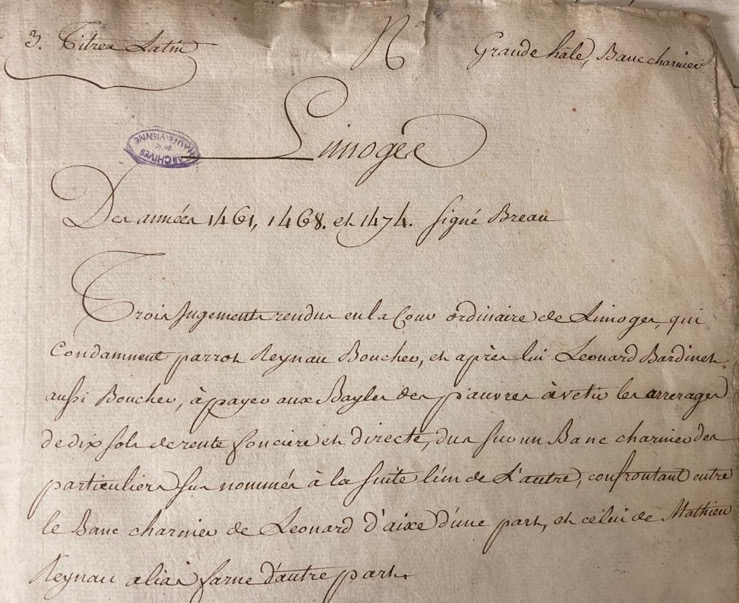 3. Titres Latin
Nº
Grande hâle, Banc charnier
ARCHIVES
de la
HAUTE-VIENNE
Limoges
Des années 1461, 1468. et 1474. signé Breau
Trois Jugements rendus en la Cour ordinaire de Limoges, qui
Condamnent parrot Reynau Boucher, et après lui Leonard Bardinet
aussi Boucher, à payer aux Bayles des pauvres à vetir les arrerages
de dix sols de rente fonciere et directe, dus sur un Banc charnier des
particuliers sus nommés à la suite l'un de L'autre, confrontant entre
le Banc charnier de Leonard d'aixe d'une part, et celui de Mathieu
Reynau alias farne d'autre part.